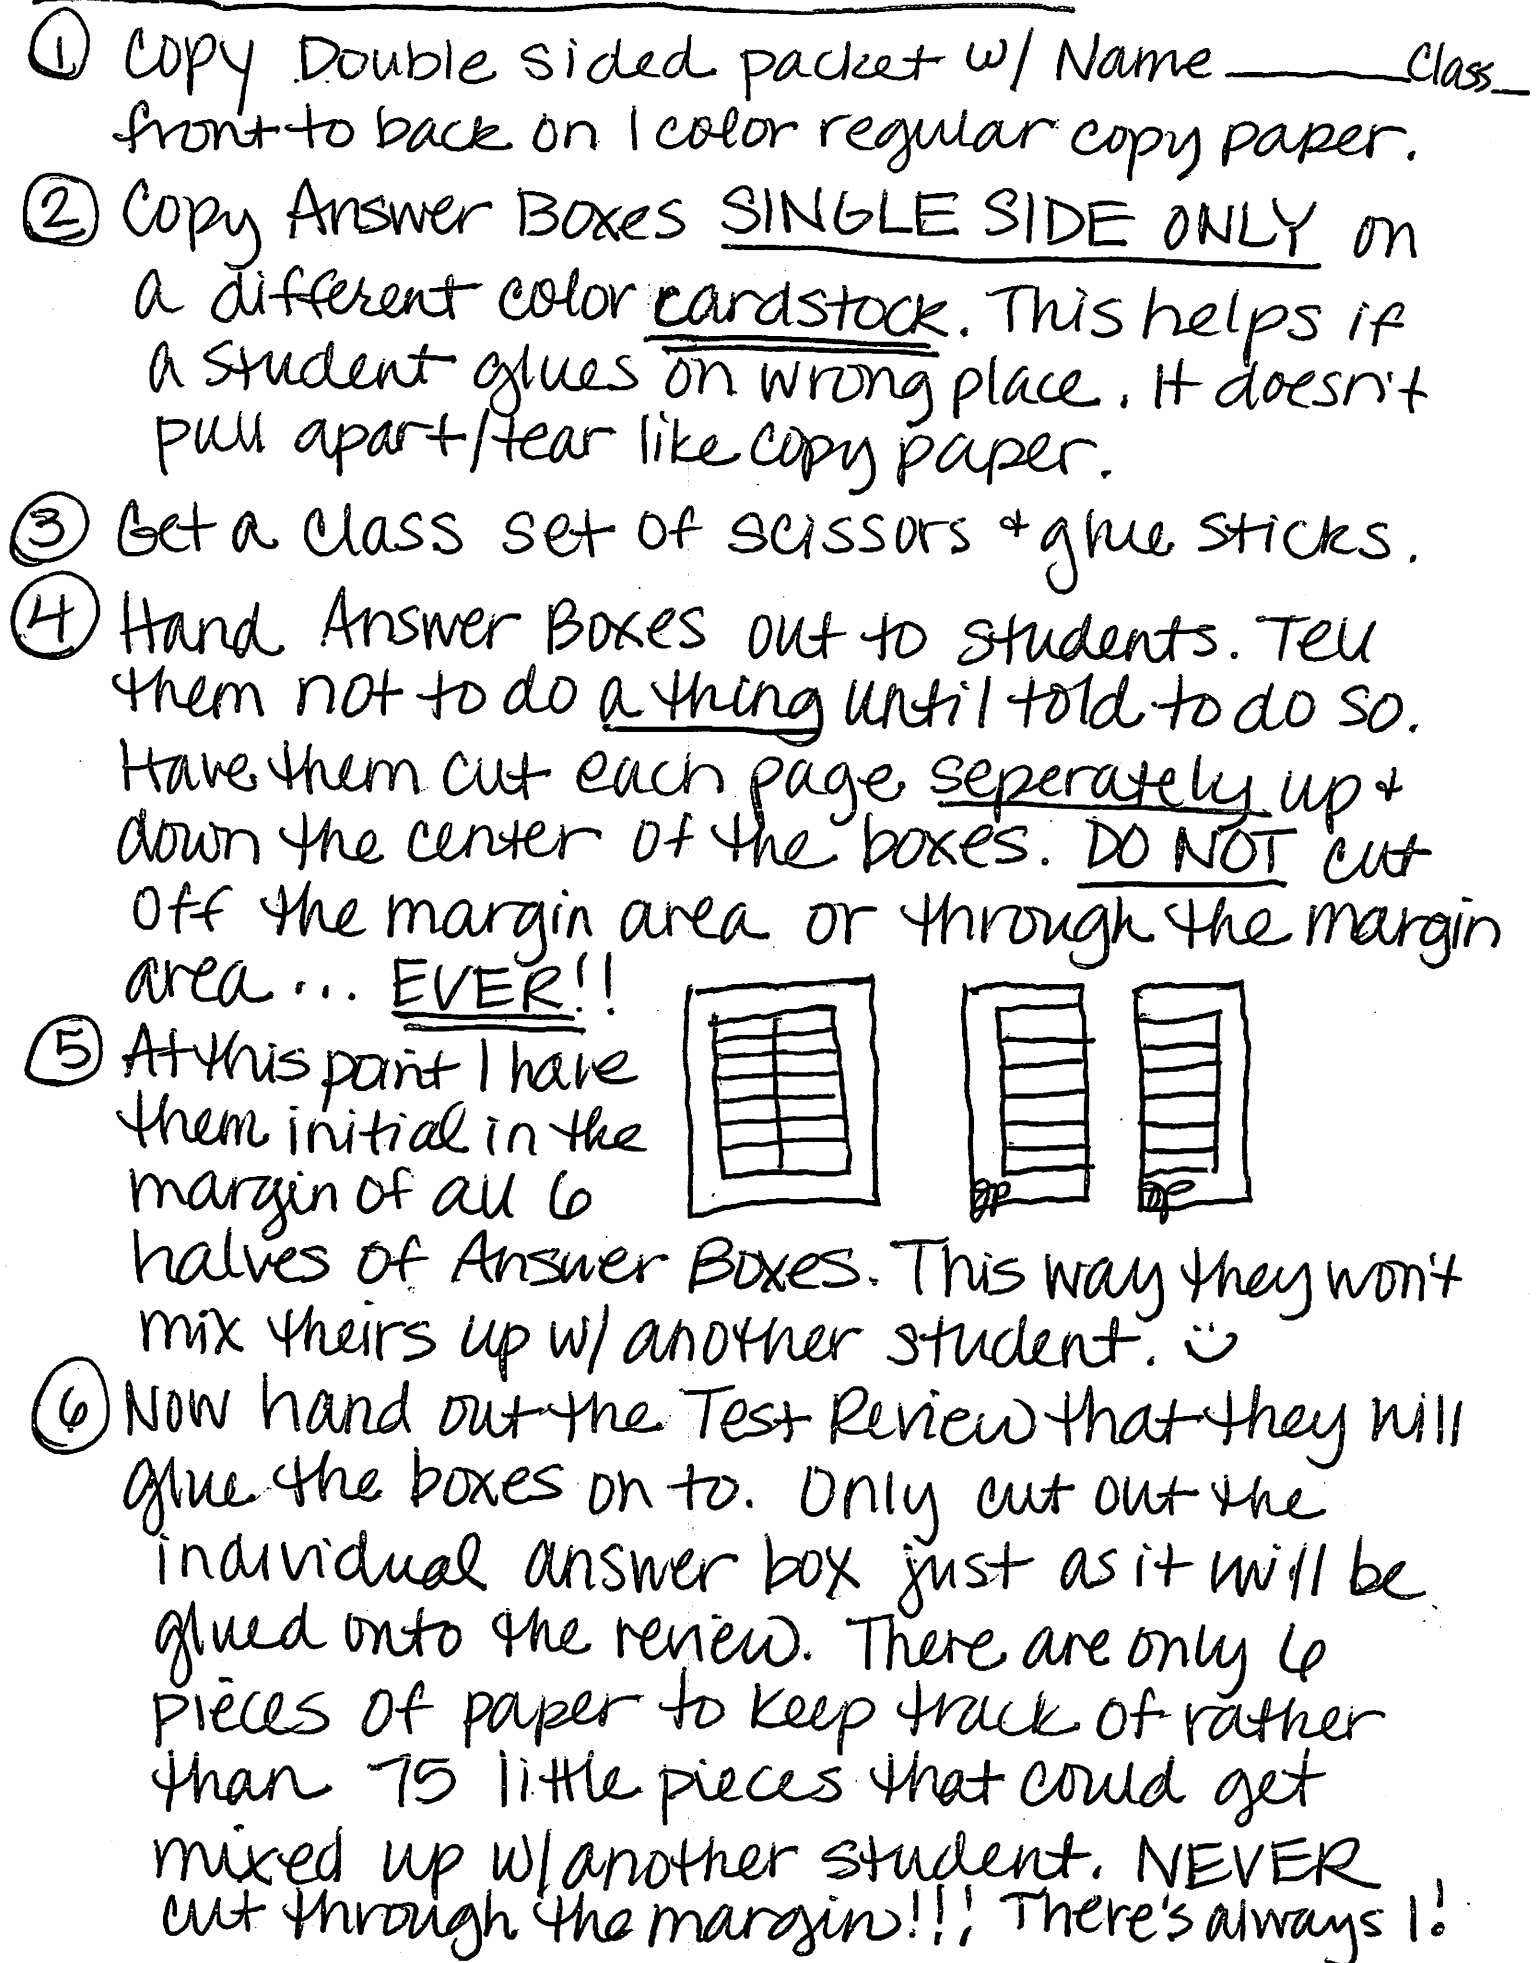 ① Copy Double sided packet w/ Name ______ Class _
front to back on 1 color regular copy paper.
② Copy Answer Boxes SINGLE SIDE ONLY on
a different color cardstock. This helps if
a student glues on wrong place. It doesn't
pull apart/tear like copy paper.
③ Get a class set of scissors + glue sticks.
④ Hand Answer Boxes out to students. Tell
them not to do a thing until told to do so.
Have them cut each page seperately up +
down the center of the boxes. DO NOT cut
off the margin area or through the margin
area... EVER!!
⑤ At this point I have
them initial in the
margin of all 6
halves of Answer Boxes. This way they won't
mix theirs up w/ another student. :)
⑥ Now hand out the Test Review that they will
glue the boxes on to. Only cut out the
individual answer box just as it will be
glued onto the review. There are only 6
pieces of paper to keep track of rather
than 75 little pieces that could get
mixed up w/ another student. NEVER
cut through the margin!!!! There's always 1!